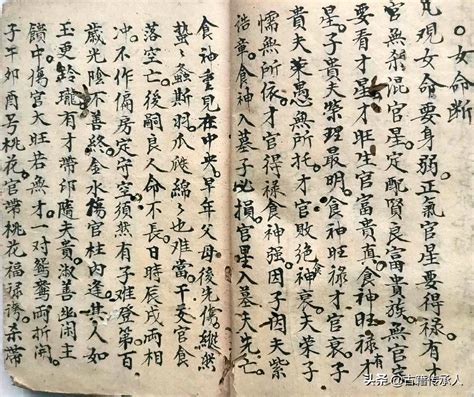 女命断
凡观女命要身弱正氣官星要得禄有才
官無煞混官星定配賢良富貴族無官
要看才星才旺生官富貴真食神旺禄才有
星子貴夫榮理最明食神旺禄才官衰子
貴夫榮愚無所托才官敗绝神衰夫榮子
懦無所依才官得禄食神强因子因夫紫
誥章食神入墓子必損官星入墓夫先亡
食神重見在中央早年父母後先傷继然
蟄螽斯羽爪瓞綿々也难當干支官食
落空亡後嗣良人命不長日時辰戌两相
冲不作偏房定守空須然有子难登第百
歲光陰不善終金水傷官柱内逢其人如
玉更玲瓏有才帶印隨夫貴淑善幽闲主
鎖中傷官大旺若無才一对鴛鴦两折開
子午卯酉号桃花官帶桃花福禄誇杀帶
头条 @古籍传承人